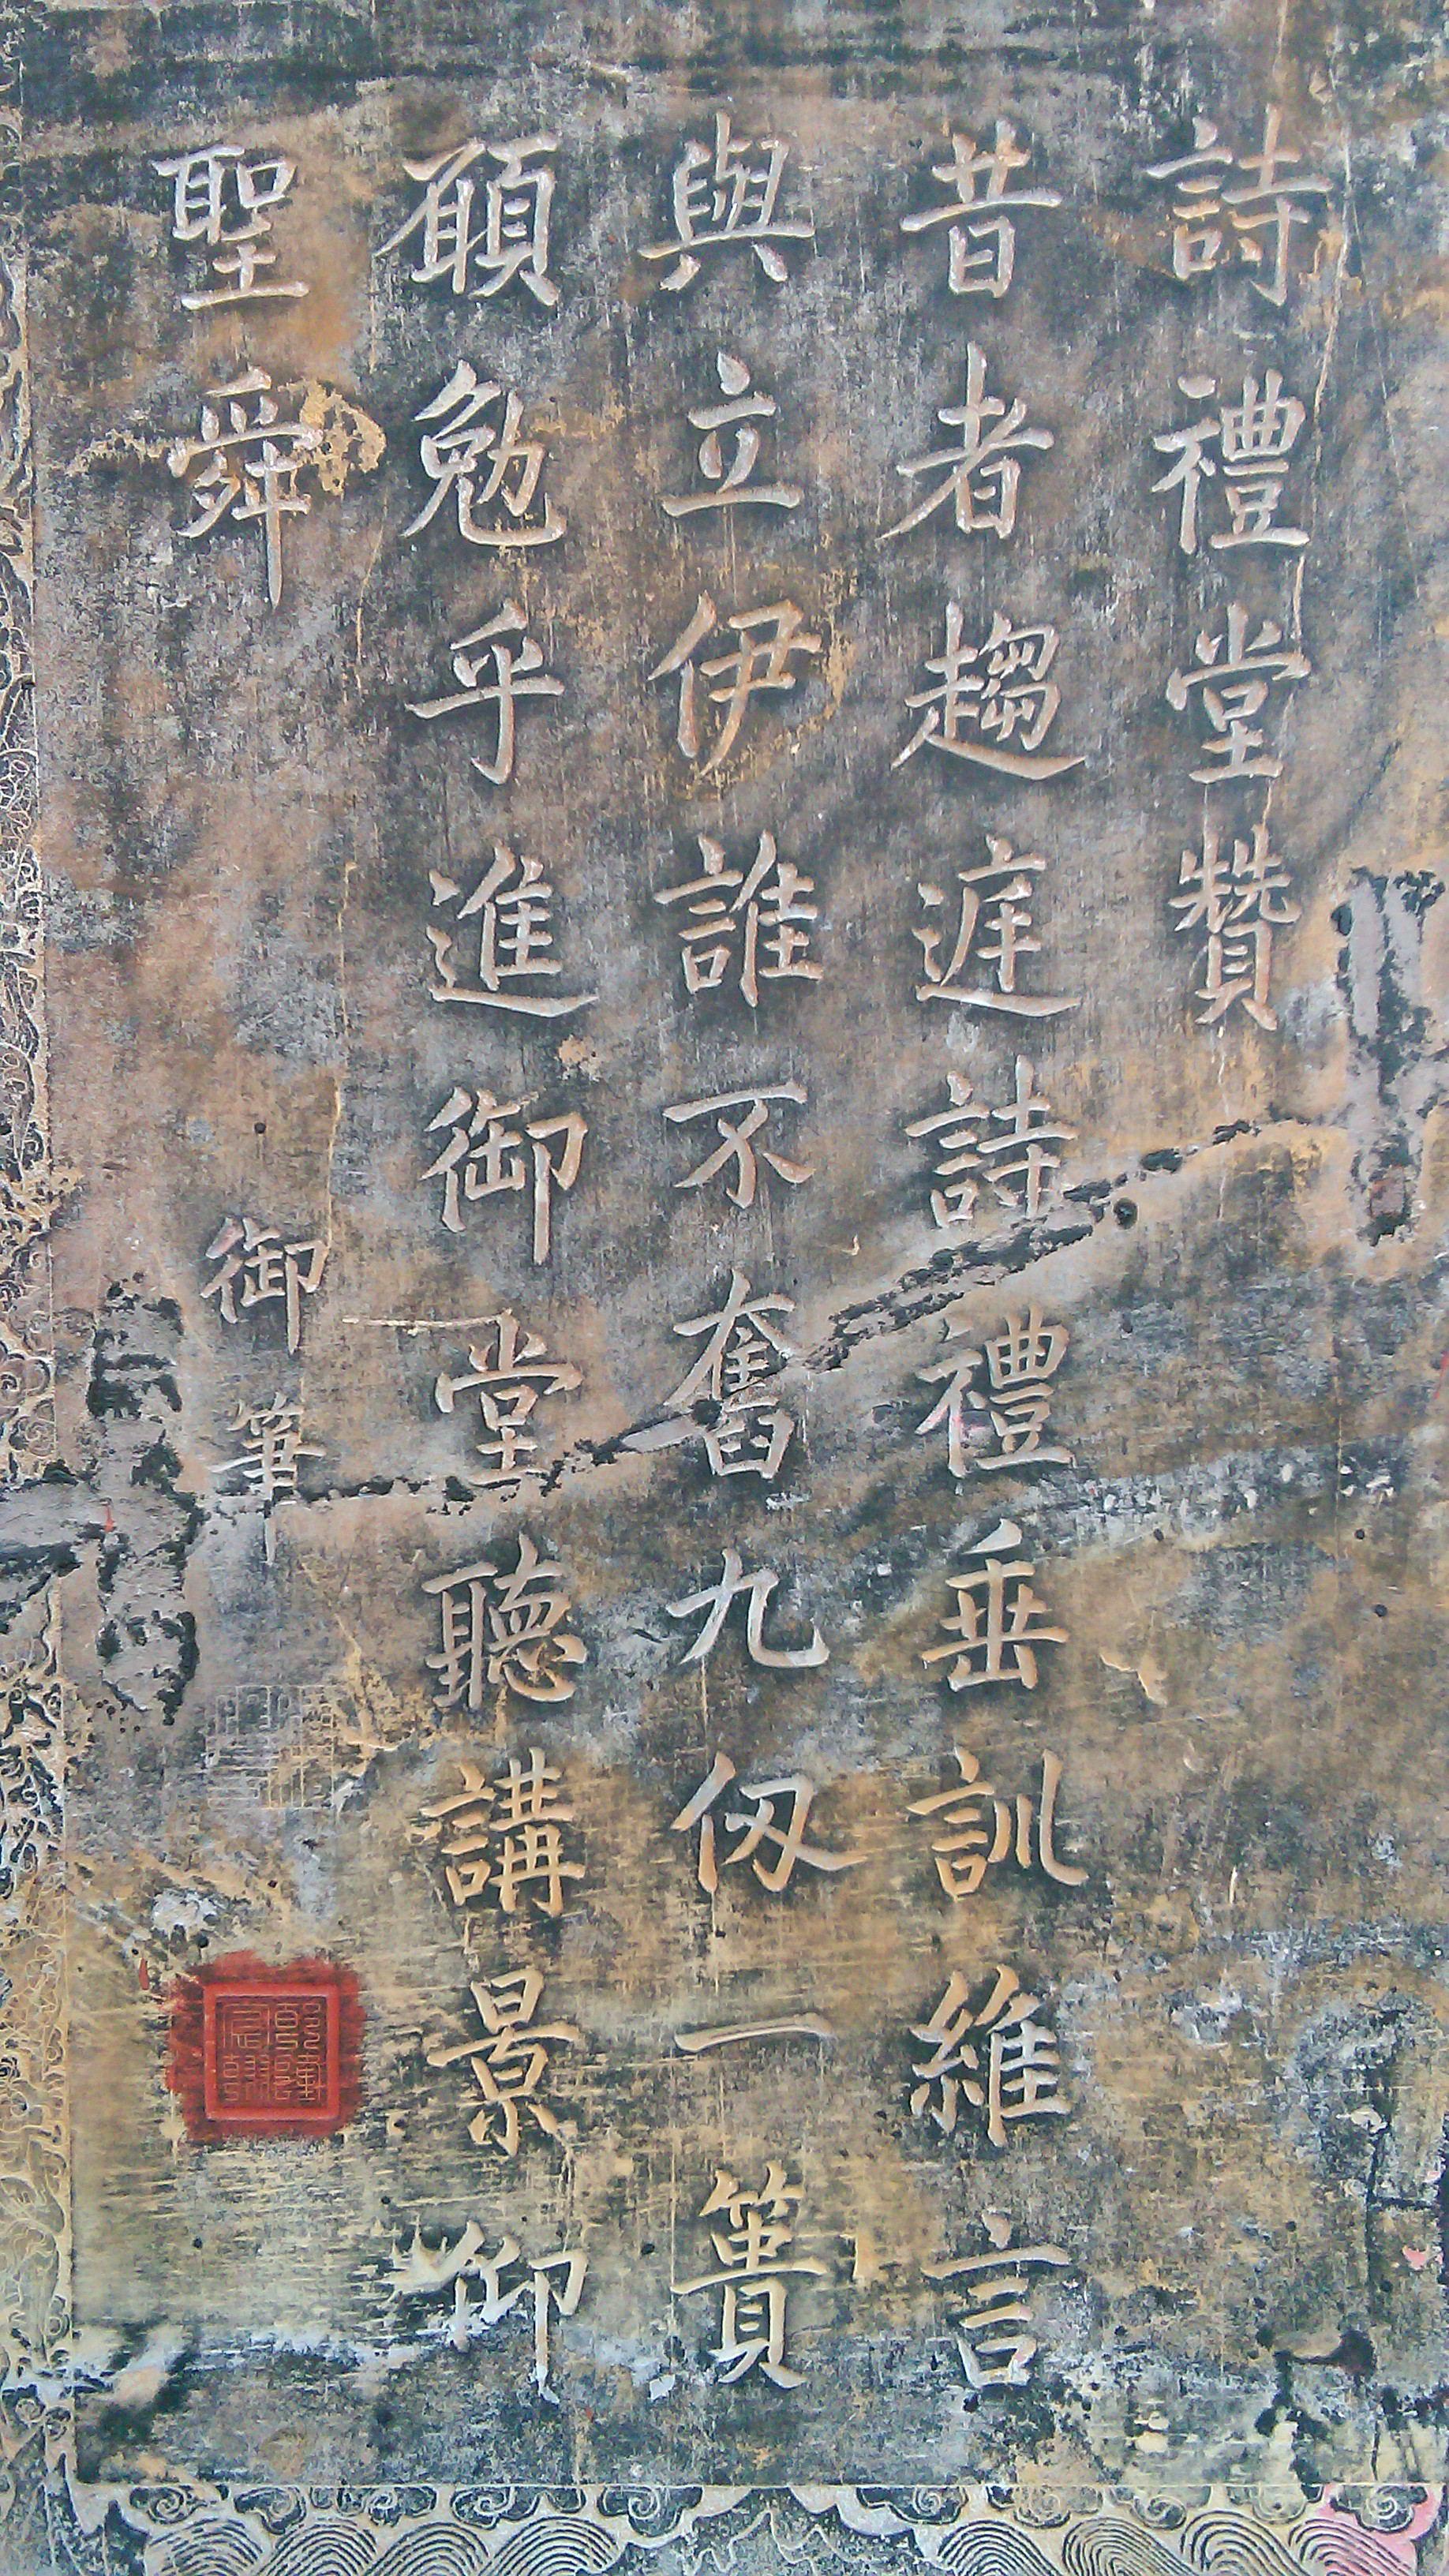 詩禮堂贊
昔者趨庭詩禮垂訓維言
與立伊誰不奮九仭一簣
願勉乎進御堂聽講景仰
聖舜
御筆